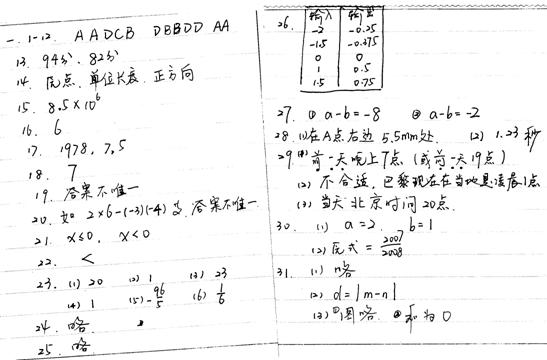 一. 1-12. AADCB DBBDD AA
13. 94分, 82分
14. 原点、单位长度、正方向
15. 8.5×10⁶
16. 6
17. 1978, 7.5
18. 7
19. 答案不唯一
20. 如 2×6-(-3)(-4) 答案不唯一
21. x≤0, x<0
22. <
23. (1) 20 (2) 1 (3) 23
(4) 1 (5) -96/5 (6) 1/6
24. 略
25. 略
26. 输入 输出
-2 -0.25
-1.5 -0.375
0 0
1 0.5
1.5 0.75
27. ① a-b=-8 ② a-b=-2
28. (1)在A点右边 5.5mm处. (2) 1.23秒
29 (1) 前一天晚上7点 (或前一天19点)
(2) 不合适, 巴黎现在在当地是凌晨1点
(3) 当天北京时间20点.
30. (1) a=2. b=1
(2) 原式 = 2007/2008
31. (1) 略
(2) d=|m-n|
(3) ①图略. ②和为0